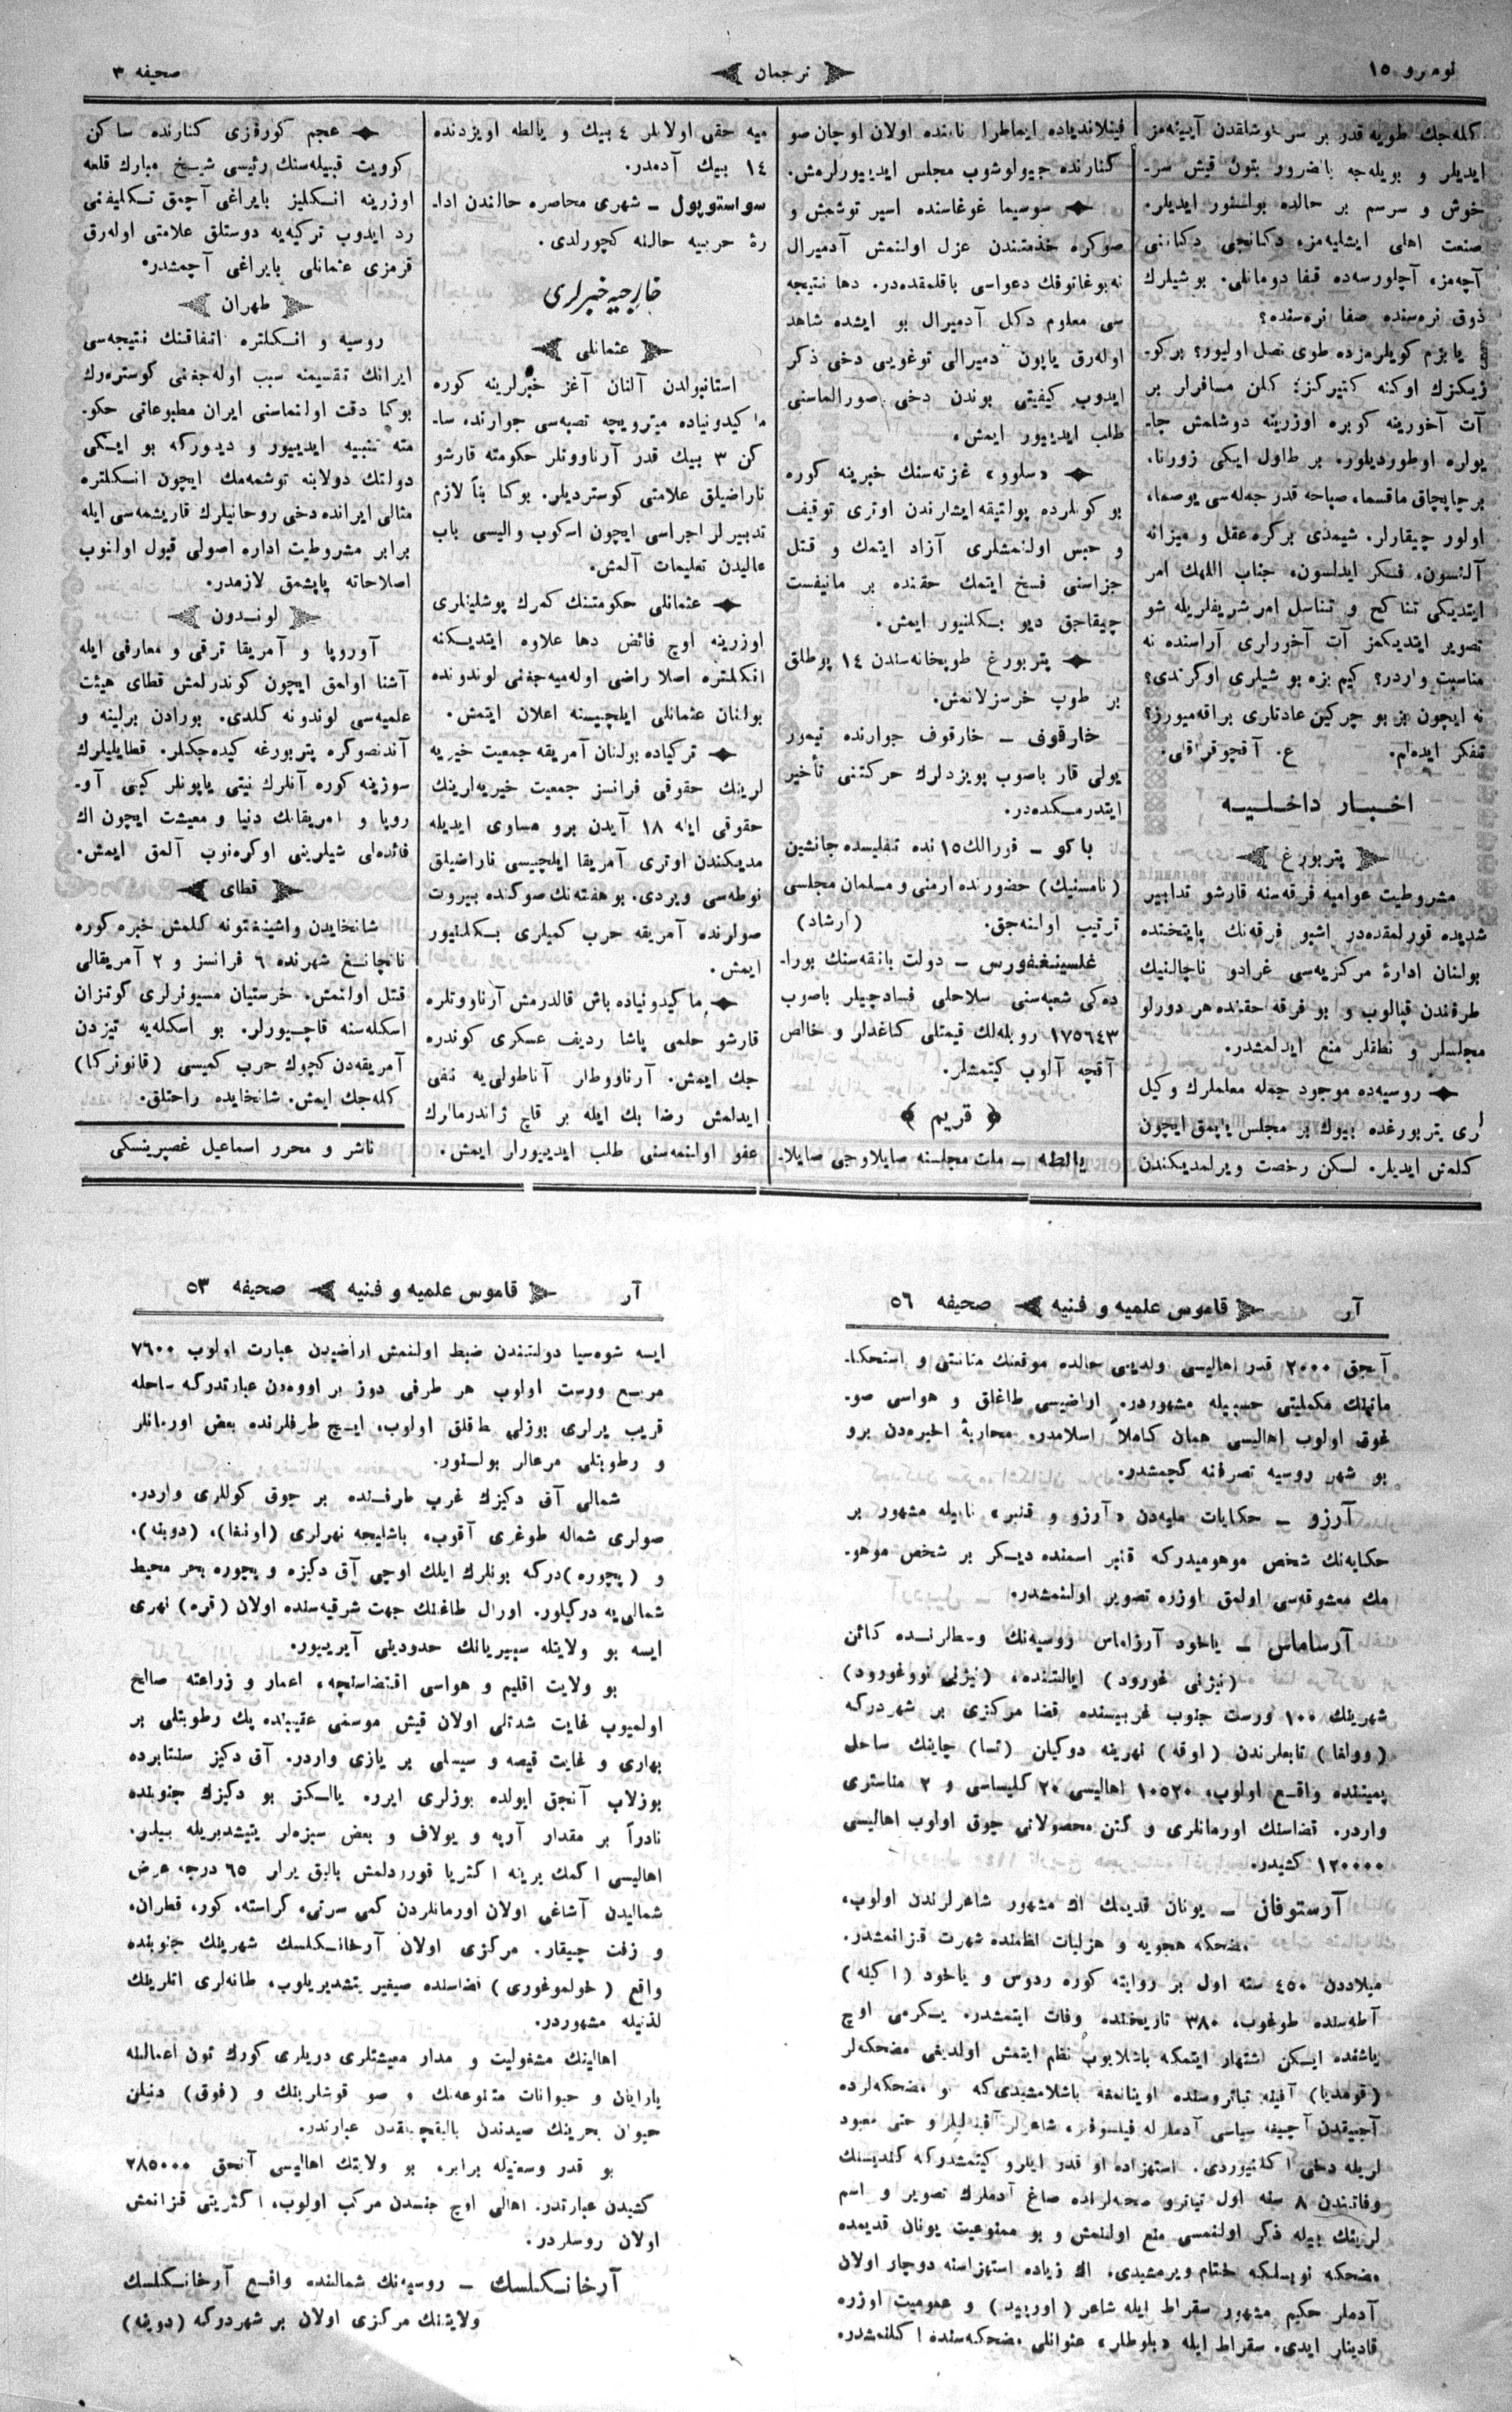 نومرو ١٥
ترجمان
صحيفه ٣
كله‌جك طويه قدر بر سرخوشلقدن آيينه‌مز
ايديلر و بويله‌جه باضرور بتون قيش سر-
خوش و سرسم بر حالده بولنيور ايديلر.
صنعت اهلى ايشليه‌مز، دكانچى دكاننى
آچه‌مز، آچلورسه‌ده قفا دومانلى. بو شيلرك
ذوق نره‌سنده صفا نره‌سنده؟
يا بزم كويلرمزده طوى نصل اوليور؟ بركو-
زيكزك اوكنه كتيركز؛ كلن مسافرلر بر
آت آخورينه كوبره اوزرينه دوشلمش جا-
يولره اوطورديلور. بر طاول ايكى زورنا.
بر چاپچاق ماقسما، صباحه قدر جمله‌سى يوصما،
اولور چيقارلر. شيمدى بركره عقل و ميزانه
آلنسون، فكر ايدلسون، جناب اللهك امر
ايتديكى تناكح و تناسل امر شريفلريله شو
تصوير ايتديكمز آت آخورلرى آراسنده نه
مناسبت واردر؟ كيم بزه بو شيلرى اوكرندى؟
نه ايچون بز بو چركين عادتلرى براقه‌ميورز؟
تفكر ايده‌لم. ع. آقچوقراقلى.
اخبار داخليه
پتربورغ
مشروطيت عواميه فرقه‌سنه قارشو تدابير
شديده قورلمقده‌در اشبو فرقه‌نك پايتختده
بولنان ادارهٔ مركزيه‌سى غرادو ناچالنيك
طرفندن قپالوب و بو فرقه حقنده هر دورلو
مجلسلر و نطقلر منع ايدلمشدر.
روسيه‌ده موجود جمله معلملرك وكيل
لرى پتربورغده بيوك بر مجلس ياپمق ايچون
كلمش ايديلر. لسكن رخصت ويرلمديكندن
فينلانديا‌ده ايماطرا نامنده اولان اوجان صو
كنارنده جيولوشوب مجلس ايدييورلرمش.
سوسيما غوغاسنده اسير توشمش و
صوكره خذمتندن عزل اولنمش آدميرال
نه‌بوغاتوفك دعواسى باقلمقده‌در. دها نتيجه
سى معلوم دكل آدميرال بو ايشده شاهد
اوله‌رق ياپون دميرالى توغويى دخى ذكر
ايدوب كيفيتى بوندن دخى صورالماسنى
طلب ايدييور ايمش.
«سلوو» غزته‌سنك خبرينه كوره
بو كونلرده پولتيقه ايشلرندن اوترى توقيف
و حبس اولنمشلرى آزاد ايتمك و قتل
جزاسنى فسخ ايتمك حقنده بر مانيفست
چيقاجق ديو بكلنيور ايمش.
پتربورغ طوپخانه‌سندن ١٤ پوطلق
بر طوپ خرسزلانمش.
خارقوف – خارقوف جوارنده تيمور
يولى قار باصوب پويزدلرك حركتنى تأخير
ايتدرمكده‌در.
باكو – فورالك ١٥ نده تفليسده جانشين
(نامستنيك) حضورنده ارمنى و مسلمان مجلسى
ترتيب اولنه‌جق. (ارشاد)
غلسينغفورس – دولت بانقه‌سنك بورا-
ده‌كى شعبه‌سنى سلاحلى فسادچيلر باصوب
١٧٥٦٤٣ روبله‌لك قيمتلى كاغدلر و خالص
آقچه آلوب كيتمشلر.
قريم
يالطه – ملت مجلسنه صايلاوجى صايلا-
ميه حقى اولانلر ٤ بيك و يالطه اويزدنده
١٤ بيك آدمدر.
سواستوپول – شهرى محاصره حالندن ادا-
رهٔ حربيه حالنه كچورلدى.
خارجيه خبرلرى
عثمانلى
استانبولدن آلنان آغز خبرلرينه كوره
ماكيدونياده ميترويچه قصبه‌سى جوارنده سا-
كن ٣ بيك قدر آرناووتلر حكومته قارشو
ناراضيلق علامتى كوسترديلر. بوكا بناً لازم
تدبيرلر اجراسى ايچون اسكوب واليسى باب
عاليدن تعليمات آلمش.
عثمانلى حكومتنك كمرك پوشلينلرى
اوزرينه اوچ فائض دها علاوه ايتديكنه
انكلتره اصلا راضى اوله‌ميه‌جغنى لوندونده
بولنان عثمانلى ايلچيسنه اعلان ايتمش.
تركياده بولنان آمريقه جمعيت خيريه
لرينك حقوقى فرانسز جمعيت خيريه‌لرينك
حقوقى ايله ١٨ آيدن برو مساوى ايديله
مديكندن اوترى آمريقا ايلچيسى ناراضيلق
نوطه‌سى ويردى. بو هفته‌نك صوكنده بيروت
صولرنده آمريقه حرب كميلرى بكلنيور
ايمش.
ماكيدونياده باش قالدرمش آرناووتلره
قارشو حلمى پاشا رديف عسكرى كوندره
جك ايمش. آرناووطلر آناطولى‌يه نفى
ايدلمش رضا بك ايله بر قاچ ژاندرمالرك
عفو اولنمه‌سنى طلب ايدييورلر ايمش.
عجم كورفزى كنارنده ساكن
كوويت قبيله‌سنك رئيسى شيخ مبارك قلعه
اوزرينه انكليز بايراغى آچمق تكليفنى
رد ايدوب تركيه‌يه دوستلق علامتى اوله‌رق
قرمزى عثمانلى بايراغى آچمشدر.
طهران
روسيه و انكلتره اتفاقنك نتيجه‌سى
ايرانك تقسيمنه سبب اوله‌جغنى كوستره‌رك
بوكا دقت اولنماسنى ايران مطبوعاتى حكو-
مته تنبيه ايدييور و ديوركه بو ايكى
دولتك دولابنه توشمه‌مك ايچون انكلتره
مثالى ايرانده دخى روحانيلرك قاريشمه‌سى ايله
برابر مشروطيت اداره اصولى قبول اولنوب
اصلاحاته ياپشمق لازمدر.
لوندون
آوروپا و آمريقا ترقى و معارفى ايله
آشنا اولمق ايچون كوندرلمش قطاى هيئت
علميه‌سى لوندونه كلدى. بورادن برلينه و
آندنصوكره پتربورغه كيده‌جكلر. قطايليلرك
سوزينه كوره آنلرك نيتى ياپونلر كبى آو-
روپا و امريقانك دنيا و معيشت ايچون اك
فائده‌لى شيلرينى اوكره‌نوب آلمق ايمش.
قطاى
شانخايدن واشينغتونه كلمش خبره كوره
نانچانغ شهرنده ٦ فرانسز و ٢ آمريقالى
قتل اولنمش. خرستيان مسيونرلرى كوتزان
اسكله‌سنه قاچيورلر. بو اسكله‌يه تيزدن
آمريقه‌دن كچوك حرب كميسى (قانونركا)
كله‌جك ايمش. شانخايده راحتلق.
ناشر و محرر اسماعيل غصپرينسكى
آر
قاموس علميه و فنيه
صحيفه ٥٦
آنجق ٢٠٠٠ قدر اهاليسى ولدينى حالده موقعنك متانتى و استحكا-
ماتنك مكمليتى حسبيله مشهوردر. اراضيسى طاغلق و هواسى صو-
غوق اولوب اهاليسى همان كاملاً اسلامدر. محاربهٔ اخيره‌دن برو
بو شهر روسيه تصرفنه كچمشدر.
آرزو – حكايات مليه‌دن «آرزو و قنبر» ناميله مشهور بر
حكايه‌نك شخص موهوميدركه قنبر اسمنده ديكر بر شخص موهو-
مك معشوقه‌سى اولمق اوزره تصوير اولنمشدر.
آرساماس – ياخود آرزاماس روسيه‌نك وسطلرنده كائن
(نيژنى غورود) ايالتنده، (نيژنى نووغورود)
شهرينك ١٠٠ ورست جنوب غربيسنده قضا مركزى بر شهردركه
(وولغا) تابعلرندن (اوقه) نهرينه دوكيلن (تسا) چاينك ساحل
يميننده واقع اولوب، ١٠٥٢٠ اهاليسى ٢٠ كليساسى و ٢ مناسترى
واردر. قضاسنك اورمانلرى و كتن محصولاتى چوق اولوب اهاليسى
١٢٠٠٠٠ كشيدر.
آرستوفان – يونان قديمك اك مشهور شاعرلرندن اولوب،
مضحكه هجويه و هزليات نظمنده شهرت قزانمشدر.
ميلاددن ٤٥٠ سنه اول بر روايته كوره ردوس و ياخود (اكينه)
آطه‌سنده طوغوب، ٣٨٠ تاريخنده وفات ايتمشدر. يكرمى اوچ
ياشنده ايكن اشتهار ايتمكه باشلايوب نظم ايتمش اولديغى مضحكه‌لر
(قومديا) آفينه تياتروسنده اوينانمغه باشلامشيدى‌كه و مضحكه‌لرده
آجيقدن آجيغه سياسى آدملرله فيلسوفلر، شاعرلر و حتى معبود
لريله دخى اكلنيوردى. استهزاده او قدر ايلرو كيتمشدركه كنديسنك
وفاتندن ٨ سنه اول تياترو صحنه‌لرنده صاغ آدملرك تصوير و اسم
لرينك بيله ذكر اولنمسى منع اولنمش و بو ممنوعيت يونان قديمده
مضحكه نويسلكه ختام ويرمشيدى. اك زياده استهزاسنه دوچار اولان
آدملر حكيم مشهور سقراط ايله شاعر (اوريپيد) و عموميت اوزره
قادينلر ايدى. سقراط ايله «بلوطلر» عنوانلى مضحكه‌سنده اكلنمشدر.
آر
قاموس علميه و فنيه
صحيفه ٥٣
ايسه شوه‌سيا دولتندن ضبط اولنمش اراضيدن عبارت اولوب ٧٦٠٠
مربع ورست اولوب هر طرفى دوز بر اووه‌دن عبارتدركه ساحله
قريب يرلرى بوزلى طاقلق اولوب، ايچ طرفلرنده بعض اورمانلر
و رطوبتلى مرعالر بولنور.
شمالى آق دكيزك غرب طرفنده بر چوق كوللرى واردر.
صولرى شماله طوغرى آقوب، باشليجه نهرلرى (اونغا)، (دوينه)،
و (پچوره)دركه بونلرك ايلك اوچى آق دكيزه و پچوره بحر محيط
شمالى‌يه دركيلور. اورال طاغنك جهت شرقيه‌سنده اولان (قره) نهرى
ايسه بو ولايتله سيبيريانك حدودينى آييريور.
بو ولايت اقليم و هواسى اقتضاسنجه، اعمار و زراعته صالح
اولميوب غايت شدتلى اولان قيش موسمى عقيبنده پك رطوبتلى بر
بهارى و غايت قيصه و سيسلى بر يازى واردر. آق دكيز سنتابرده
بوزلاب آنجق ايولده بوزلرى ايرر. يالكز بو دكيزك جنوبنده
نادراً بر مقدار آرپه و يولاف و بعض سبزه‌لر يتيشديريله بيلير.
اهاليسى اكمك يرينه اكثريا قورودلمش باليق يرلر ٦٥ درجه عرض
شماليدن آشاغى اولان اورمانلردن كمى سرنى، كراسته، كور، قطران،
و زفت چيقار. مركزى اولان آرخانكلسك شهرينك جنوبنده
واقع (خولموغورى) قضاسنده صيغير يتشديريلوب، طانه‌لرى اتلرينك
لذتيله مشهوردر.
اهالينك مشغوليت و مدار معيشتلرى دريلرى كورك تون اعمالنه
يارايان و حيوانات متنوعه‌نك و صو قوشلرينك و (فوق) دنيلن
حيوان بحرينك صيدندن باليقچيلقدن عبارتدر.
بو قدر وسعتيله برابر، بو ولايتك اهاليسى آنجق ٢٨٥٠٠٠
كشيدن عبارتدر. اهالى اوچ جنسدن مركب اولوب، اكثريتى قزانمش
اولان روسلردر.
آرخانكلسك – روسيه‌نك شمالنده واقع آرخانكلسك
ولايتنك مركزى اولان بر شهردركه (دوينه)